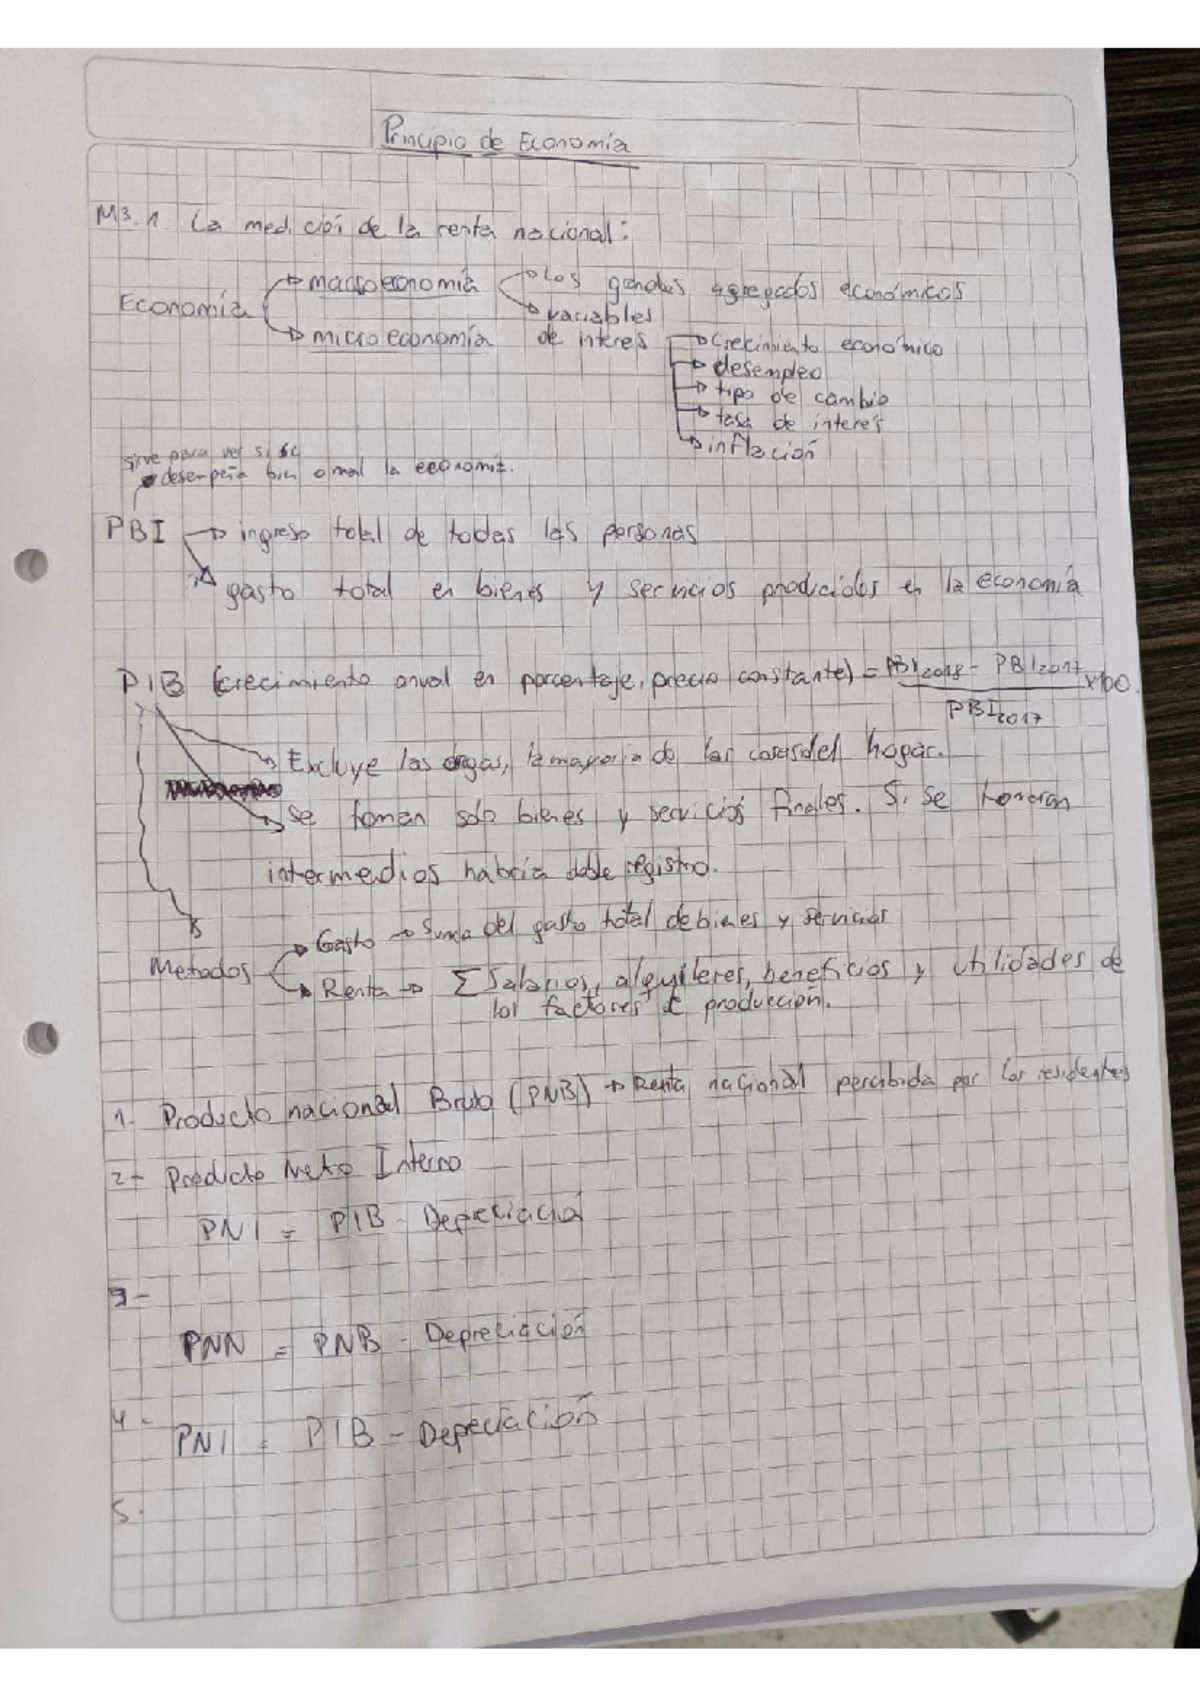 Principio de Economía
M3.1. La medición de la renta nacional:
Economía → macroeconomía → Los grandes agregados económicos
→ variables de interes → crecimiento económico
→ microeconomía
→ desempleo
→ tipo de cambio
→ tasa de interés
→ inflación
sirve para ver si se
desempeña bien o mal la economía.
PBI → ingreso total de todas las personas
→ gasto total en bienes y servicios producidos en la economía
PIB (crecimiento anual en porcentaje, precio constante) = PBI2018 - PBI2017 / PBI2017 x100.
→ Excluye las drogas, la mayoría de las cosas del hogar.
→ se toman solo bienes y servicios finales. Si se tomaran
intermedios habría doble registro.
Metodos → Gasto → Suma del gasto total de bienes y servicios
→ Renta → Σ Salarios, alquileres, beneficios y utilidades de
los factores de producción.
1- Producto nacional Bruto (PNB) → Renta nacional percibida por los residentes
2- Producto Neto Interno
PNI = PIB - Depreciación
3-
PNN = PNB - Depreciación
4-
PNI = PIB - Depreciación
5.